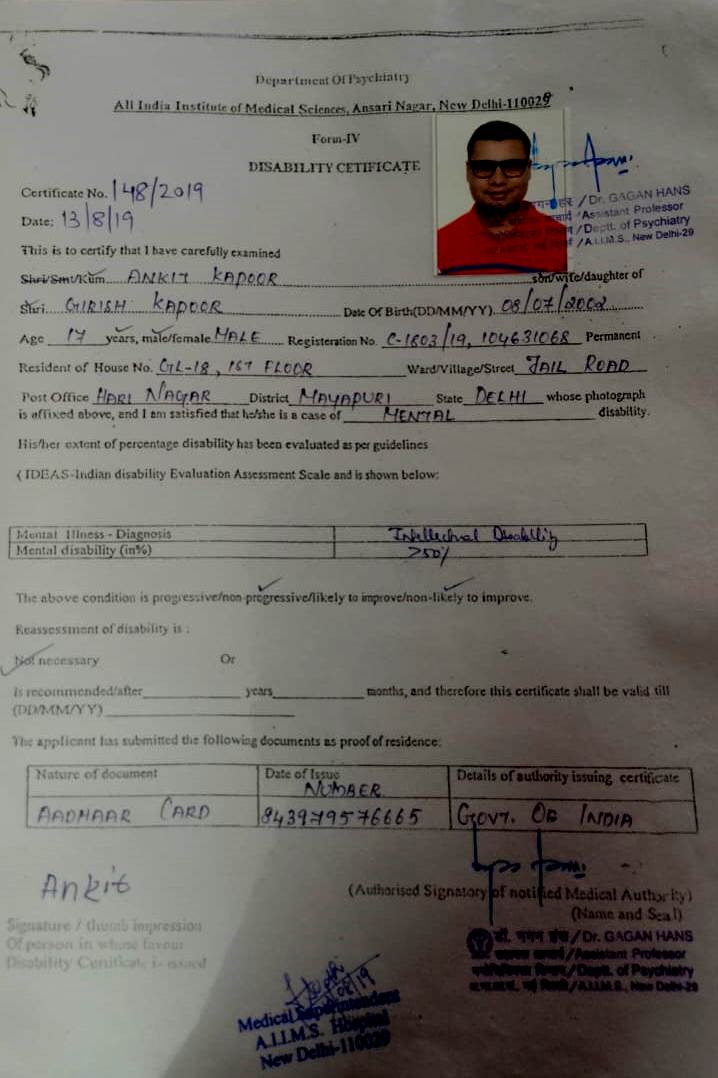 Department Of Psychiatry
All India Institute of Medical Sciences, Ansari Nagar, New Delhi-110029
Form-IV
DISABILITY CETIFICATE
Certificate No. 148/2019
/ Dr. GAGAN HANS
/ Assistant Professor
/ Deptt. of Psychiatry
/ A.I.I.M.S., New Delhi-29
Date: 13/8/19
This is to certify that I have carefully examined
Shri/Smt/Kum ANKIT KAPOOR son/wife/daughter of
Shri. GIRISH KAPOOR Date Of Birth(DD/MM/YY) 08/07/2002
Age 17 years, male/female MALE Registeration No. C-1803/19, 104631068 Permanent
Resident of House No. GL-18, 1ST FLOOR Ward/Village/Street JAIL ROAD
Post Office HARI NAGAR District MAYAPURI State DELHI whose photograph
is affixed above, and I am satisfied that he/she is a case of MENTAL disability.
His/her extent of percentage disability has been evaluated as per guidelines
( IDEAS-Indian disability Evaluation Assessment Scale and is shown below:
Mental Illness - Diagnosis Intellectual Disability
Mental disability (in%) >50%
The above condition is progressive/non-progressive/likely to improve/non-likely to improve.
Reassessment of disability is :
Not necessary Or
Is recommended/after years months, and therefore this certificate shall be valid till
(DD/MM/YY)
The applicant has submitted the following documents as proof of residence:
Nature of document Date of Issue Details of authority issuing certificate
NUMBER
AADHAAR CARD 843979576665 GOVT. OF INDIA
Ankit
(Authorised Signatory of notified Medical Authority)
(Name and Seal)
Signature / thumb impression
Of person in whose favour
Disability Certificate is issued
डॉ. गगन हंस / Dr. GAGAN HANS
/ Assistant Professor
/ Deptt. of Psychiatry
/ A.I.I.M.S., New Delhi-29
Medical Superintendent
A.I.I.M.S. Hospital
New Delhi-110029